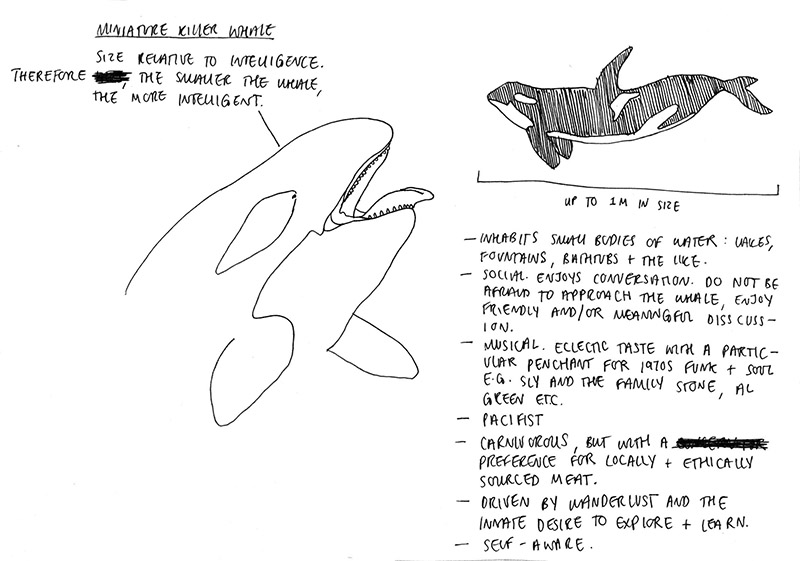 MINIATURE KILLER WHALE
SIZE RELATIVE TO INTELLIGENCE.
THEREFORE , THE SMALLER THE WHALE,
THE MORE INTELLIGENT.
UP TO 1M IN SIZE
- INHABITS SMALL BODIES OF WATER: LAKES,
FOUNTAINS, BATHTUBS + THE LIKE.
- SOCIAL. ENJOYS CONVERSATION. DO NOT BE
AFRAID TO APPROACH THE WHALE, ENJOY
FRIENDLY AND/OR MEANINGFUL DISSCUSS-
ION.
- MUSICAL. ECLECTIC TASTE WITH A PARTIC-
ULAR PENCHANT FOR 1970S FUNK + SOUL
E.G. SLY AND THE FAMILY STONE, AL
GREEN ETC.
- PACIFIST
- CARNIVOROUS, BUT WITH A
PREFERENCE FOR LOCALLY + ETHICALLY
SOURCED MEAT.
- DRIVEN BY WANDERLUST AND THE
INNATE DESIRE TO EXPLORE + LEARN.
- SELF-AWARE.